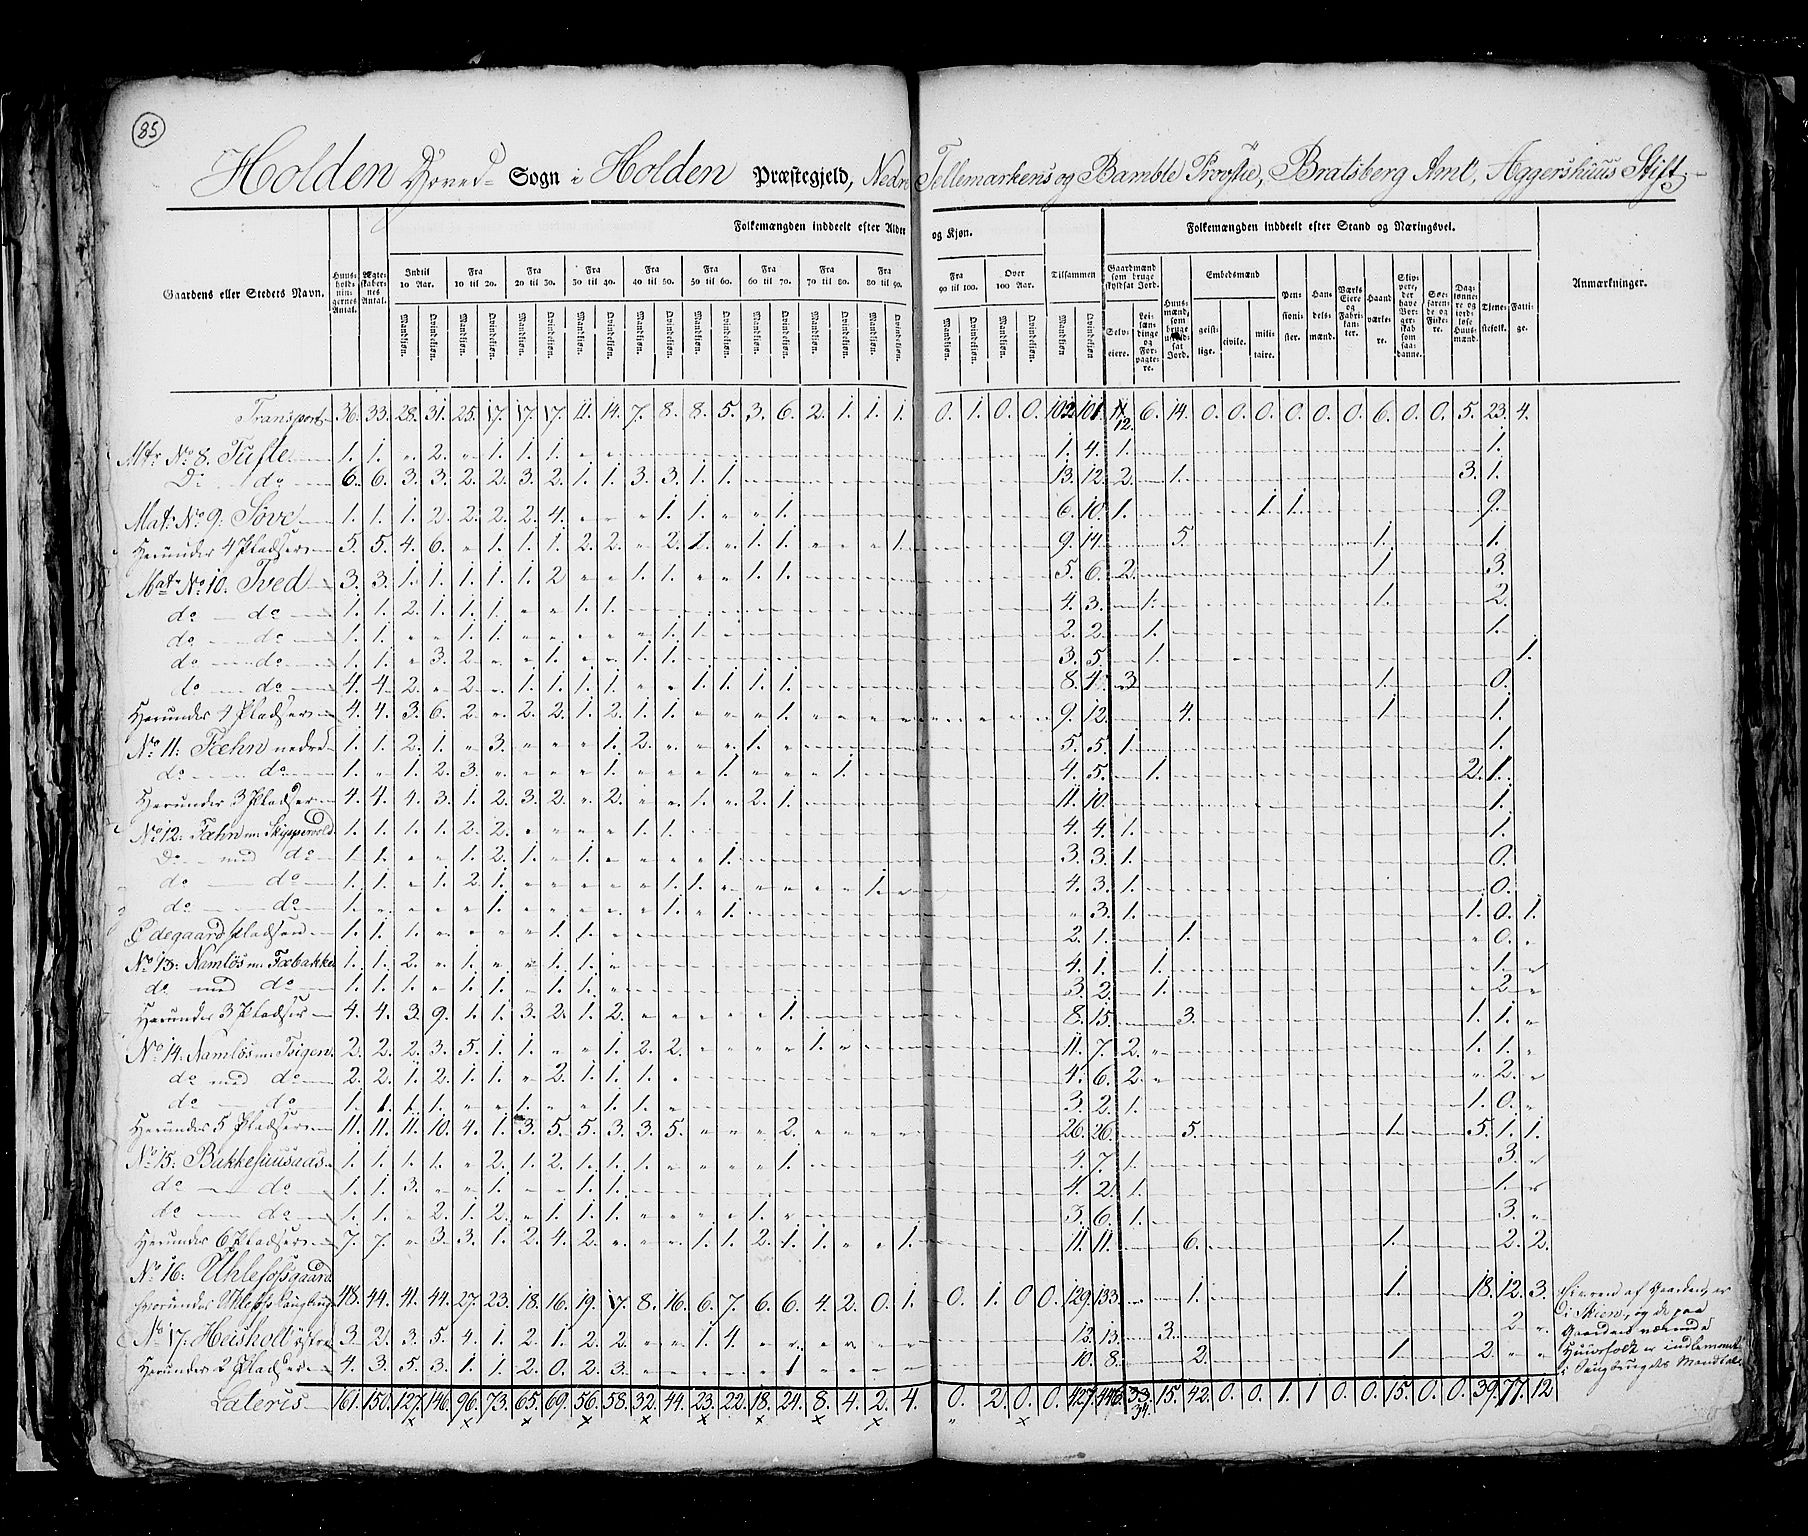 85
Holden Hoved- Sogn i Holden Præstegjeld, Nedre Tellemarkens og Bamble Provstie, Bratsberg Amt, Aggershuus Stift.
Folkemængden inddeelt efter Alder og Kjøn. Folkemængden inddeelt efter Stand og Næringsvei.
Gaardens eller Stedets Navn. Huusholdningernes Antal. Ægteskabernes Antal. Indtil 10 Aar. Fra 10 til 20. Fra 20 til 30. Fra 30 til 40. Fra 40 til 50. Fra 50 til 60. Fra 60 til 70. Fra 70 til 80. Fra 80 til 90. Fra 90 til 100. Over 100 Aar. Tilsammen Gaardmænd som bruge skyldsat Jord. Huusmænd, som bruge uskyldsat Jord. Embedsmænd Pensionister. Handelsmænd. Værks Eiere og Fabrikanter. Haandværkere. Skippere, der have Borgerskab som saadanne. Søefarende og Fiskere. Daglønnere og jordløse Huusmænd. Tjenestefolk. Fattige. Anmærkninger.
Mandkjøn. Qvindekjøn. Selveiere. Leilændinge og Forpagtere. geistlige. civile. militaire.
Transport 36. 33. 28. 31. 25. 17. 17. 17. 11. 14. 7. 8. 8. 5. 3. 6. 2. 1. 1. 1. 0. 1. 0. 0. 102 101 11 6. 14. 0. 0. 0. 0. 0. 0. 6. 0. 0. 5. 23. 4.
12.
Matr No 8. Tufte 1. 1. 2. 1. 1. 1. 1. 4. 1. 1.
Do do 6. 6. 3. 3. 2. 2. 3. 2. 1. 1. 3. 3. 1. 1. 13. 12. 2. 1. 3. 1.
Matr No 9. Söve 1. 1. 1. 2. 2. 2. 2. 4. 1. 1. 1. 6. 10. 1. 1. 1. 9.
Herunder 4 Pladser 5. 5. 4. 6. 1. 1. 1. 2. 2. 2. 1. 1. 1. 1. 9. 14. 5. 1. 1.
Matr No 10. Tved 3. 3. 1. 1. 1. 1. 1. 2 1. 1. 1. 1. 5. 6. 2. 1. 3.
do do 1. 1. 2. 1. 1. 1. 1. 1. 4. 3. 1. 1. 2.
do do 1. 1. 1. 1. 1. 1. 2. 2. 1. 1.
do do 1. 1. 3. 2. 1. 1. 1. 3. 5. 1. 1.
do do 4. 4. 2. 2. 1. 1. 1. 1. 1. 1. 1. 1. 8. 4. 3 1. 0.
Herunder 4 Pladser 4. 4. 3. 6. 2. 2. 2. 1. 2. 1. 1. 1. 9. 12. 4. 1. 1.
No 11: Fæhn nedre 1. 1. 2. 1. 3. 1. 2. 1. 5. 5. 1. 1.
do do 1. 1. 2. 3. 1. 1. 1. 4. 5. 1. 2. 1.
Herunder 3 Pladser 4. 4. 4. 3. 1. 2. 3. 2. 2. 1. 2. 1. 11. 10. 1.
No 12: Fæhn m: Skippervold 1. 1. 1. 1. 2. 2. 1. 1. 4. 4. 1. 1.
Do med do 1. 1. 1. 2. 1. 1. 1. 3. 3. 1. 0.
do do 1. 1. 1. 2. 1. 1. 1. 1. 4. 3. 1. 0.
do do 1. 1. 1. 1. 3. 1. 1. 0. 1.
Ödegaard Pladsen 1. 1. 1. 1. 1. 2. 1. 1. 0.
No 13: Namlös m: Foxbakke 1. 1. 2. 1. 1. 1. 4. 1. 1. 1.
do med do 1. 1. 1. 1. 1. 1. 1. 3. 2. 1. 2.
Herunder 3 Pladser 4. 4. 3. 9. 1. 1. 3. 2. 1. 2. 1. 8. 15. 3. 1. 1.
No 14. Namlös m: Teigen 2. 2. 2. 3. 5. 1. 1. 1. 2. 2. 1. 11. 7. 2. 1. 1.
do med do 2. 2. 1. 2. 1. 1. 2. 1. 1. 1. 4. 6. 2. 2.
do do 1. 1. 1. 1. 1. 1. 1. 3. 2. 1. 1. 0.
Herunder 5 Pladser 11. 11. 11. 10. 4. 1. 3. 5. 5. 3. 3. 5. 2. 26. 26. 5. 1. 5. 1. 1.
No 15: Bukkehuusaas 1. 1. 1. 1. 2. 1. 2. 1. 1. 1. 1. 4. 7. 1. 3.
do do 1. 1. 3. 1. 1. 1. 4. 2. 1. 1.
do do 1. 1. 2. 1. 2. 1. 1. 1. 1. 3. 6. 1. 3.
Herunder 6 Pladser 7. 7. 3. 3. 1. 2. 4. 2. 1. 1. 2. 1. 1. 1. 11. 11. 6. 1. 2. 2.
No 16: Uhlefosgaard
hvorunder Uhlefos Saugbrug 48. 44. 41. 44. 27. 23. 18. 16. 19. 17. 8. 16. 6. 7. 6. 6. 4. 2. 0. 1. 0. 1. 0 0. 129. 133. 1. 1. 18. 12. 3. Eieren af Gaarden er
No 17: Heisholt østre 3. 2. 3. 5. 4. 1. 2. 1. 2. 2. 1. 4. 12. 13. 3. 2 i Skien, og de paa
Gaarden værende
Herunder 2 Pladser 4. 3. 5. 3. 1. 1. 2. 0. 2. 3. 1 10. 8. 2. 1. 2. Huusfolk er indlemmet
i Saugbrugets Mandtal
Lateris 161. 150. 127. 146. 96. 73. 65. 69. 56. 58. 32. 44. 23. 22. 18. 24. 8. 4. 2. 4. 0. 2. 0. 0. 427. 446. 33. 15. 42. 0. 0. 1. 1 0. 0. 15. 0. 0. 39. 77. 12
34.